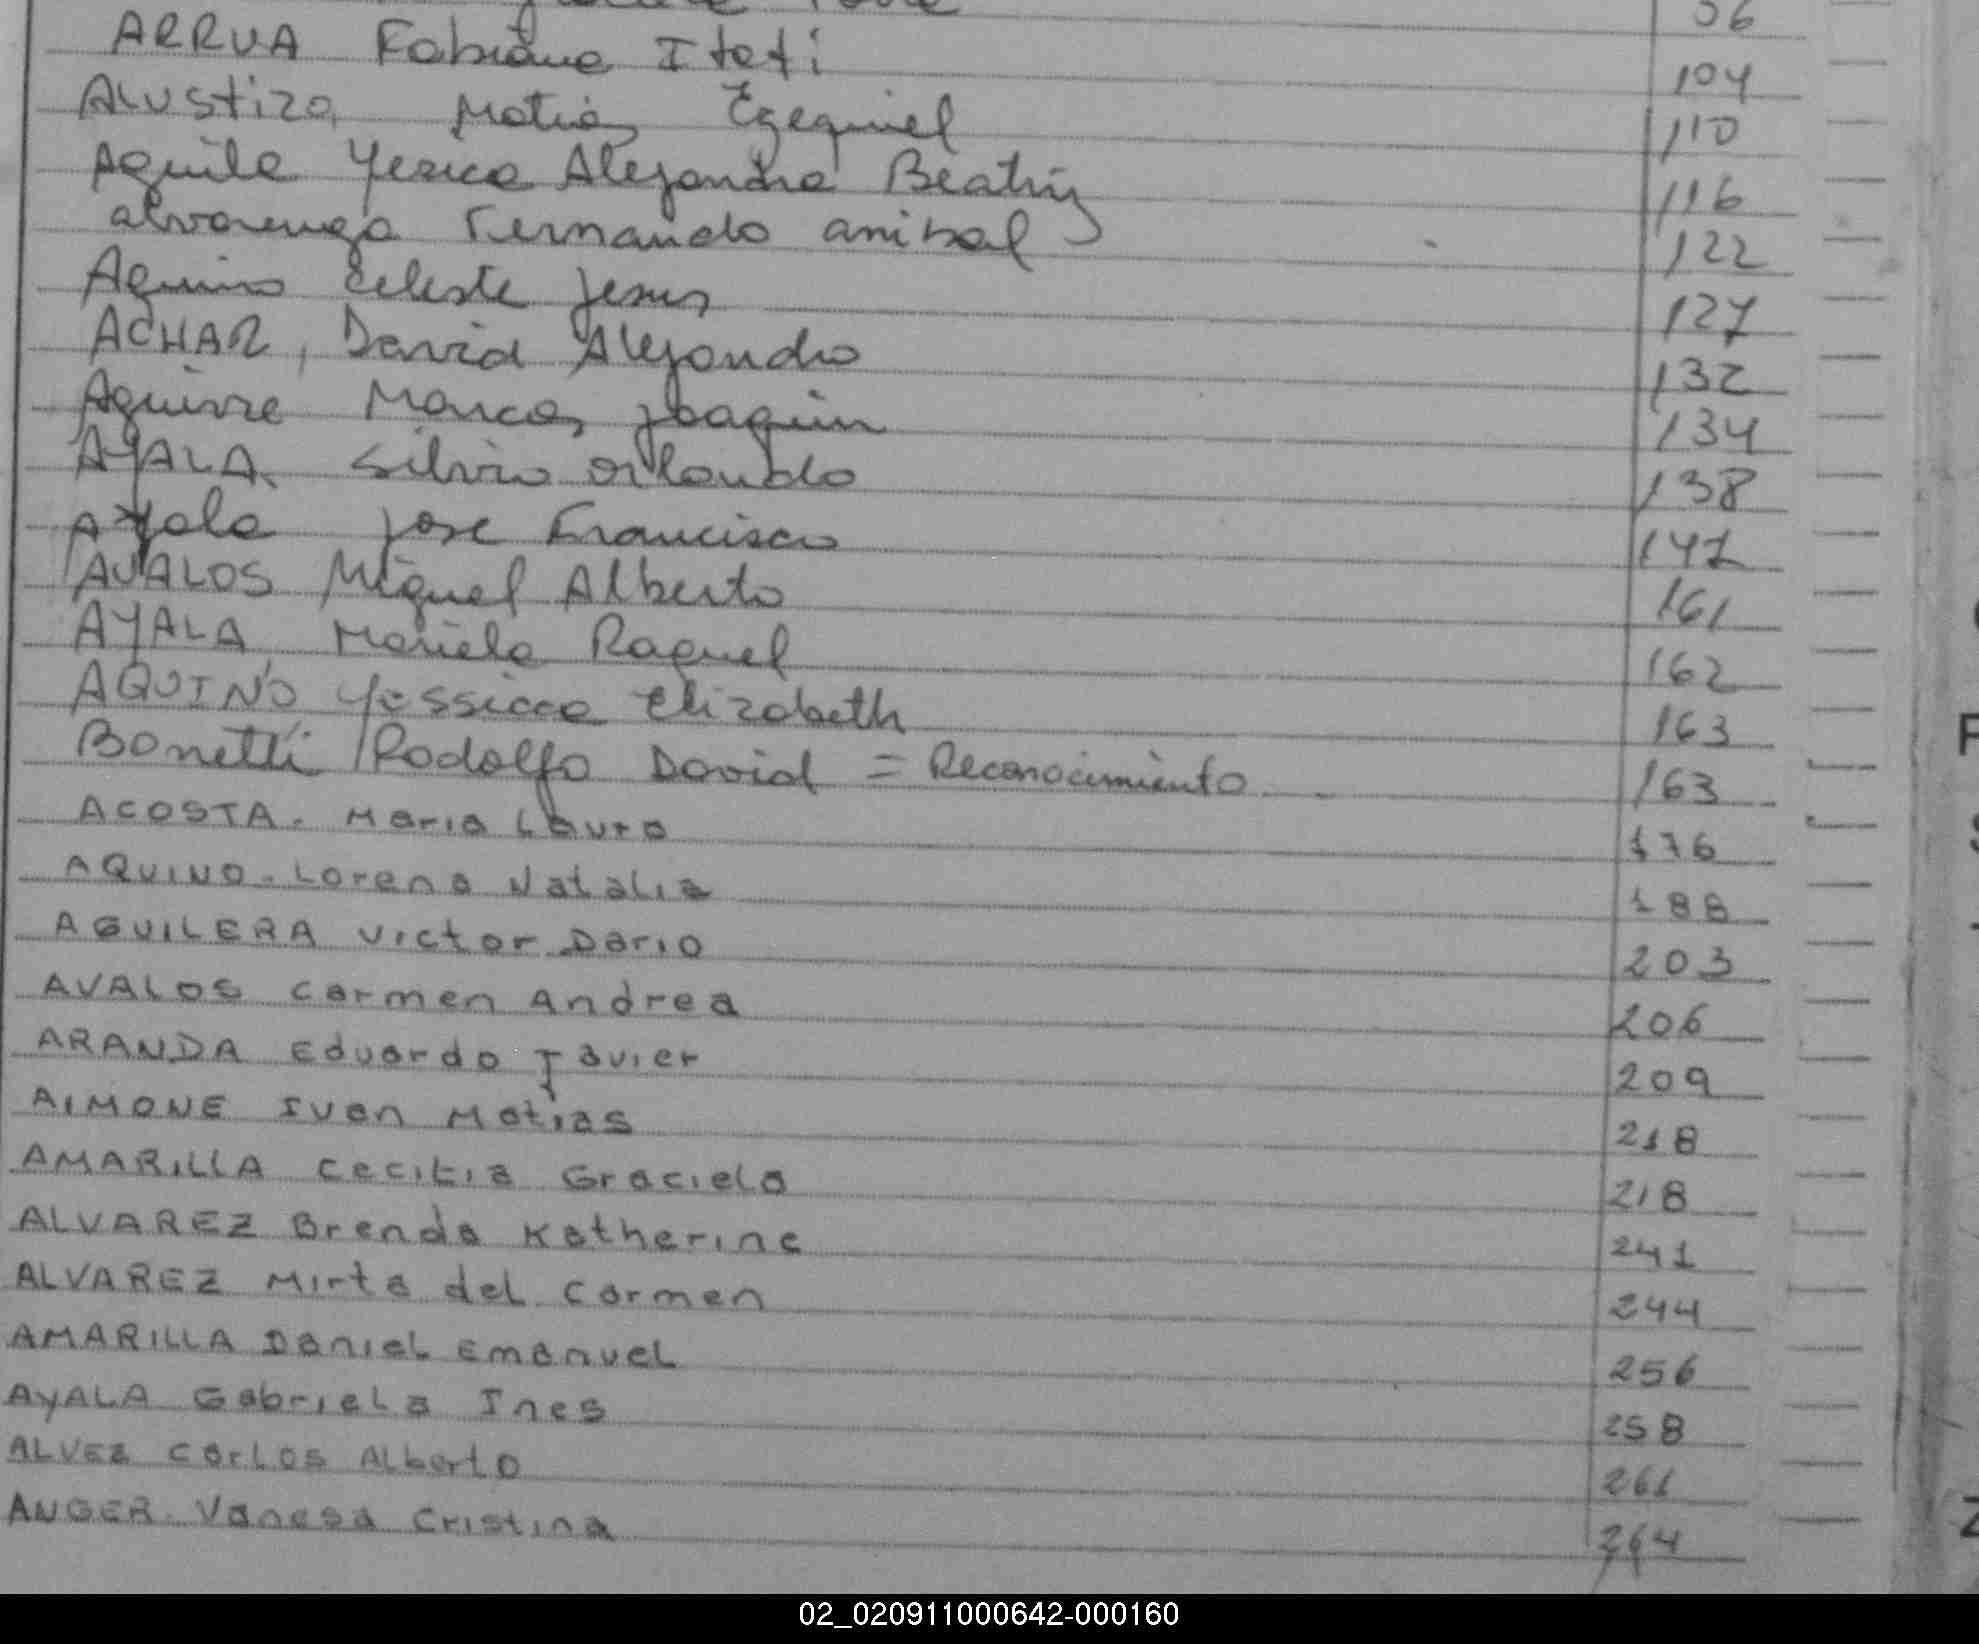 56
ARRUA Fabiana Itatí 104
Alustiza, Matias Ezequiel 110
Aguila Yesica Alejandra Beatriz 116
alvarenga Fernando anibal 122
Aquino Celeste Jesus 127
ACHAR, David Alejandro 132
Aguirre Marcos Joaquin 134
AYALA Silvio Orlando 138
Ayala Jose Francisco
AVALOS Miguel Alberto 161
AYALA Mariela Raquel 162
AQUINO Yessicca Elizabeth 163
Bonetti Rodolfo David = Reconocimiento 163
ACOSTA. Maria Laura 176
AQUINO. Lorena Natalia 188
AGUILERA Victor Dario 203
AVALOS Carmen Andrea 206
ARANDA Eduardo Javier 209
AIMONE Ivan Matias 218
AMARILLA Cecilia Graciela 218
ALVAREZ Brenda Katherine 241
ALVAREZ Mirta del Carmen 244
AMARILLA Daniel Emanuel 256
AYALA Gabriela Ines 258
ALVEZ Carlos Alberto 261
ANGER. Vanesa Cristina 264
02_020911000642-000160